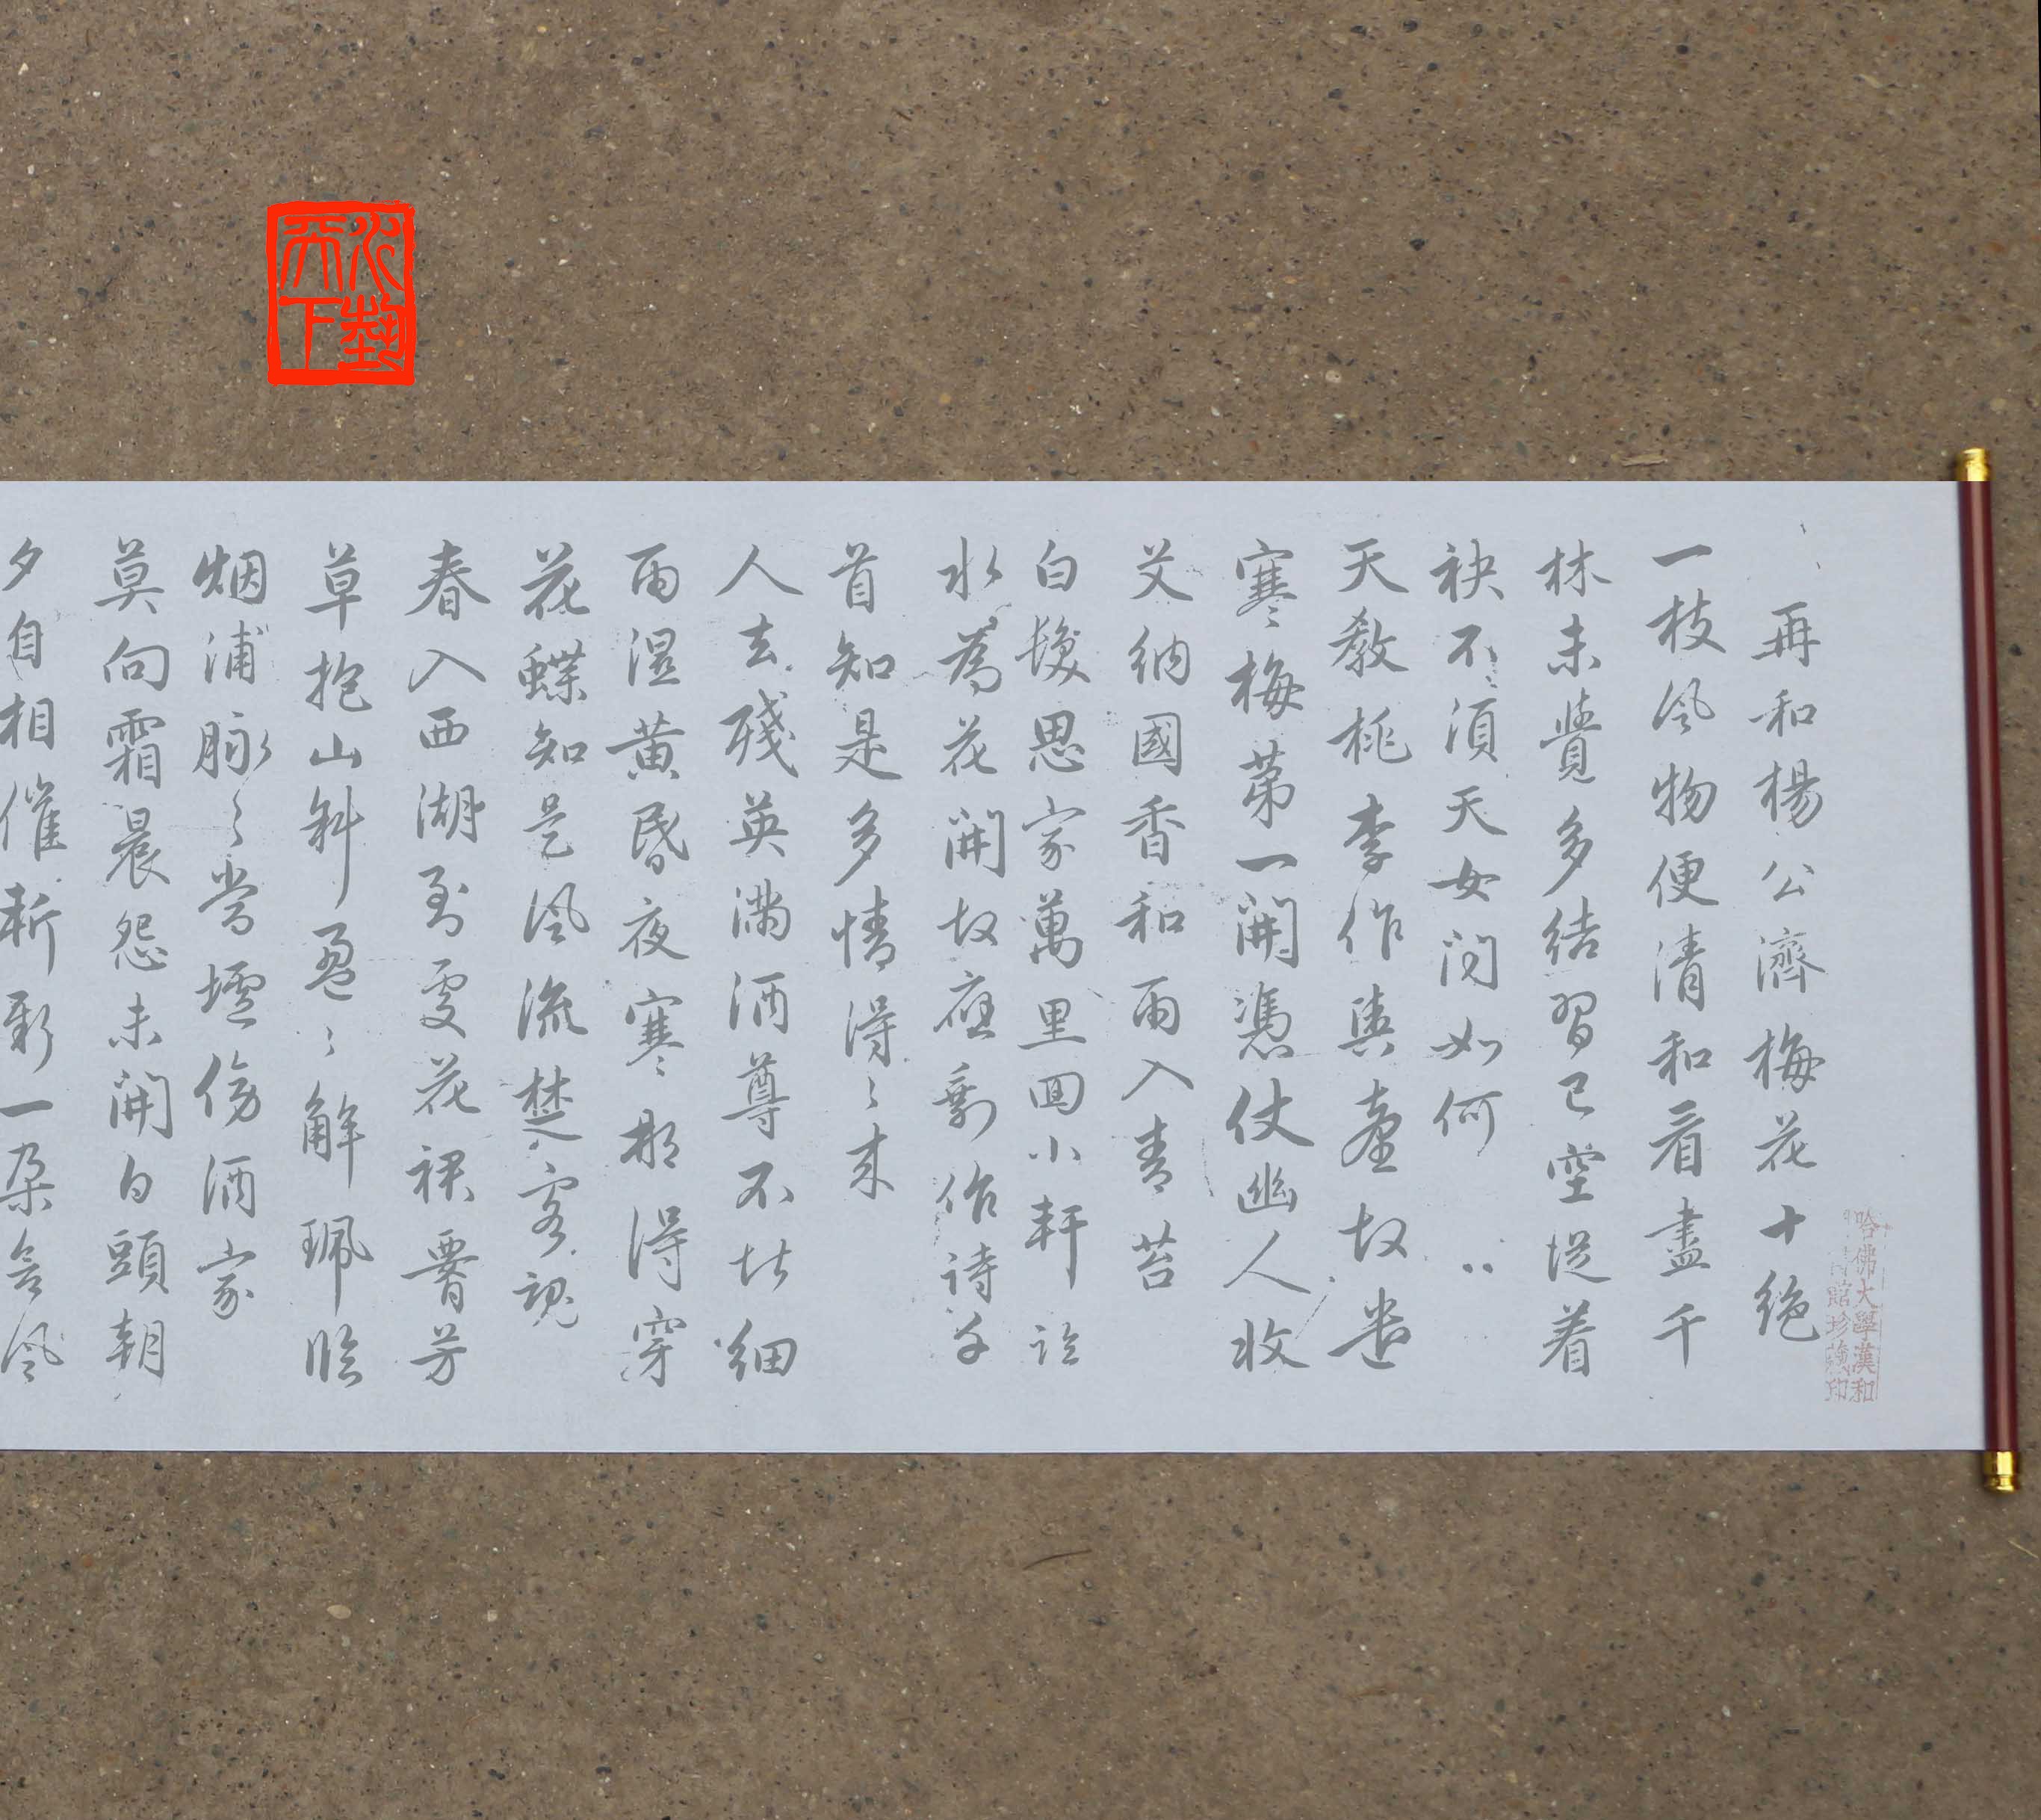 再和楊公濟梅花十絕
一枝風物便清和看盡千
林未覺多結習已空從着
袂不須天女問如何
天教桃李作輿臺故遣
寒梅第一開憑仗幽人收
艾納國香和雨入青苔
白髮思家萬里回小軒臨
水為花開故應剩作詩千
首知是多情得〻來
人去殘英滿酒尊不堪細
雨濕黃昏夜寒那得穿
花蝶知是風流楚客魂
春入西湖到處花裙腰芳
草抱山斜盈〻解珮臨
烟浦脉〻當壚傍酒家
莫向霜晨怨未開白頭朝
夕自相催斬新一朵含風
哈佛大學漢和
館珍藏印
藝
天下